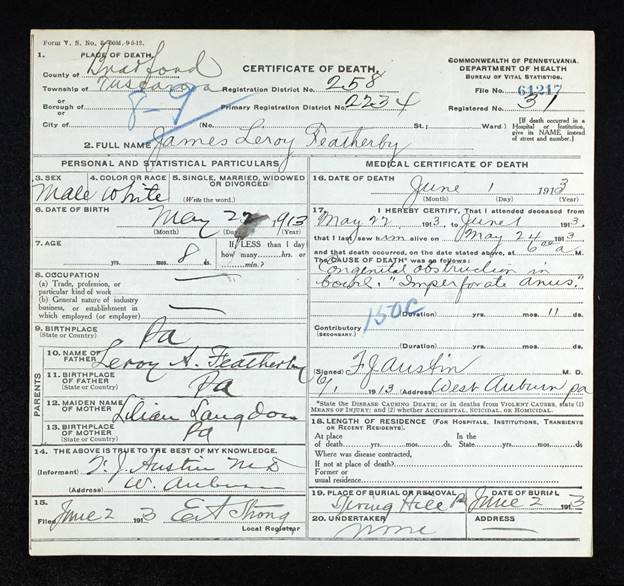 Form V. S. No. 5-50M, 9-5-12.
1. PLACE OF DEATH,
County of Bradford
Township of Tuscarora
or
Borough of
or
City of
8-9
CERTIFICATE OF DEATH,
Registration District No. 258
Primary Registration District No. 2234
(No. St.; Ward)
COMMONWEALTH OF PENNSYLVANIA.
DEPARTMENT OF HEALTH
BUREAU OF VITAL STATISTICS.
File No. 61217
Registered No. 31
[If death occurred in a Hospital or Institution, give its NAME instead of street and number.]
2. FULL NAME James Leroy Featherby
PERSONAL AND STATISTICAL PARTICULARS
3. SEX 4. COLOR OR RACE 5. SINGLE, MARRIED, WIDOWED OR DIVORCED
Male White (Write the word.)
6. DATE OF BIRTH
May 22 1913
(Month) (Day) (Year)
7. AGE If LESS than 1 day
yrs. mos. 8 ds. how many hrs. or min.?
8. OCCUPATION
(a) Trade, profession, or particular kind of work
(b) General nature of industry business, or establishment in which employed (or employer)
9. BIRTHPLACE
(State or Country) Pa
PARENTS
10. NAME OF FATHER Leroy A. Featherby
11. BIRTHPLACE OF FATHER
(State or Country) Pa
12. MAIDEN NAME OF MOTHER Lilian Langdon
13. BIRTHPLACE OF MOTHER
(State or Country) Pa
14. THE ABOVE IS TRUE TO THE BEST OF MY KNOWLEDGE.
(Informant) F. J. Austin M D
(Address) W. Auburn
15.
Filed June 2 1913 Strong
Local Registrar
MEDICAL CERTIFICATE OF DEATH
16. DATE OF DEATH
June 1 1913
(Month) (Day) (Year)
17. I HEREBY CERTIFY, That I attended deceased from
May 22 1913, to June 1 1913,
that I last saw him alive on May 24 1913
and that death occurred, on the date stated above, at 6 a M.
The CAUSE OF DEATH was as follows:
Congenital obstruction in
bowel. "Imperforate anus."
150C
(Duration) yrs. mos. 11 ds.
Contributory
(SECONDARY.)
(Duration) yrs. mos. ds.
(Signed) F J Austin M. D.
6/1 1913 (Address) West Auburn Pa
* State the DISEASE CAUSING DEATH; or in deaths from VIOLENT CAUSES, state (1) MEANS OF INJURY; and (2) whether ACCIDENTAL, SUICIDAL, OR HOMICIDAL.
18. LENGTH OF RESIDENCE (FOR HOSPITALS, INSTITUTIONS, TRANSIENTS OR RECENT RESIDENTS).
At place of death yrs. mos. ds. In the State yrs. mos. ds.
Where was disease contracted,
If not at place of death?
Former or usual residence
19. PLACE OF BURIAL OR REMOVAL DATE OF BURIAL
Spring Hill Pa June 2 1913
20. UNDERTAKER ADDRESS
none